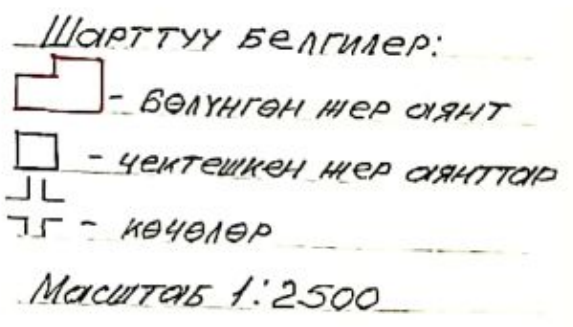 Шарттуу белгилер:
- бөлүнгөн жер аянт
- чектешкен жер аянттар
- көчөлөр
Масштаб 1:2500